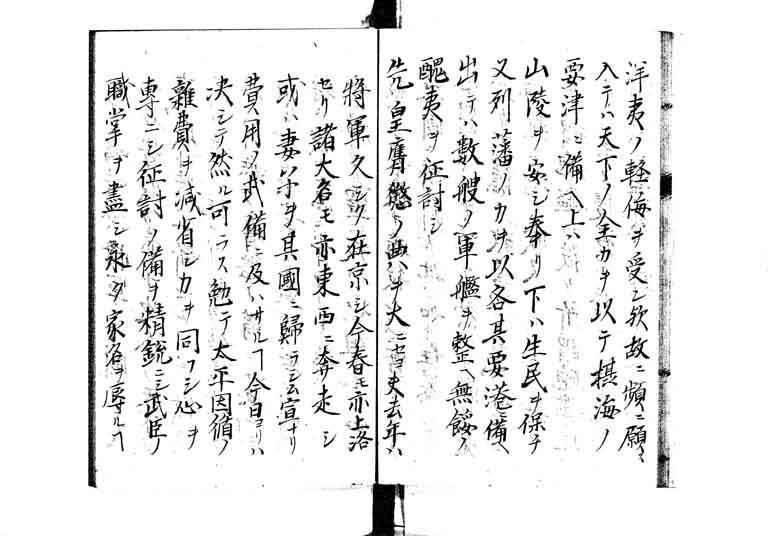 洋夷ノ軽侮ヲ受ン欤故ニ頻ニ願クハ
入テハ天下ノ全力ヲ以テ摂海ノ
要津ニ備ヘ上ハ
山陵ヲ安シ奉リ下ハ生民ヲ保チ
又列藩ノ力ヲ以各其要港ニ備ヘ
出テハ数艘ノ軍艦ヲ整ヘ無餒ノ
醜夷ヲ征討シ
先皇膺懲ノ典ヲ大ニセヨ夫去年ハ
将軍久シク在京シ今春モ亦上洛
セリ諸大名モ亦東西ニ奔走シ
或ハ妻子ヲ其國ニ歸ラシム宣ナリ
費用ノ武備ニ及ハサルヿ今日ヨリハ
決シテ然ル可ラス勉テ太平因循ノ
雜費ヲ減省シ力ヲ同フシ心ヲ
専ニシ征討ノ備ヲ精銳ニシ武臣ノ
職掌ヲ盡シ永ク家名ヲ辱ルヿ